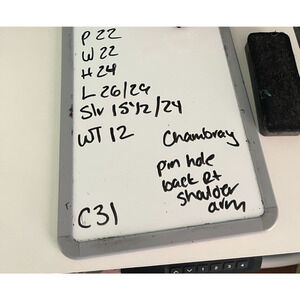 P 22
W 22
H 24
L 26/29
Slv 15 1/2/24
WT 12
Chambray
pin hole
back Rt
shoulder
arm
C31